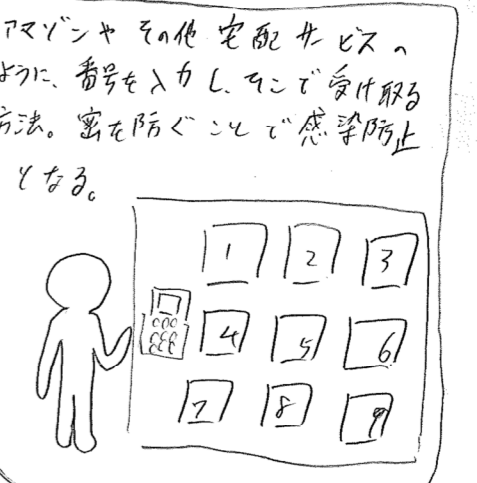 アマゾンや その他 宅配 サービスの
ように、番号を入力し、そこで受け取る
方法。密を防ぐことで感染防止
となる。
1 2 3
4 5 6
7 8 9